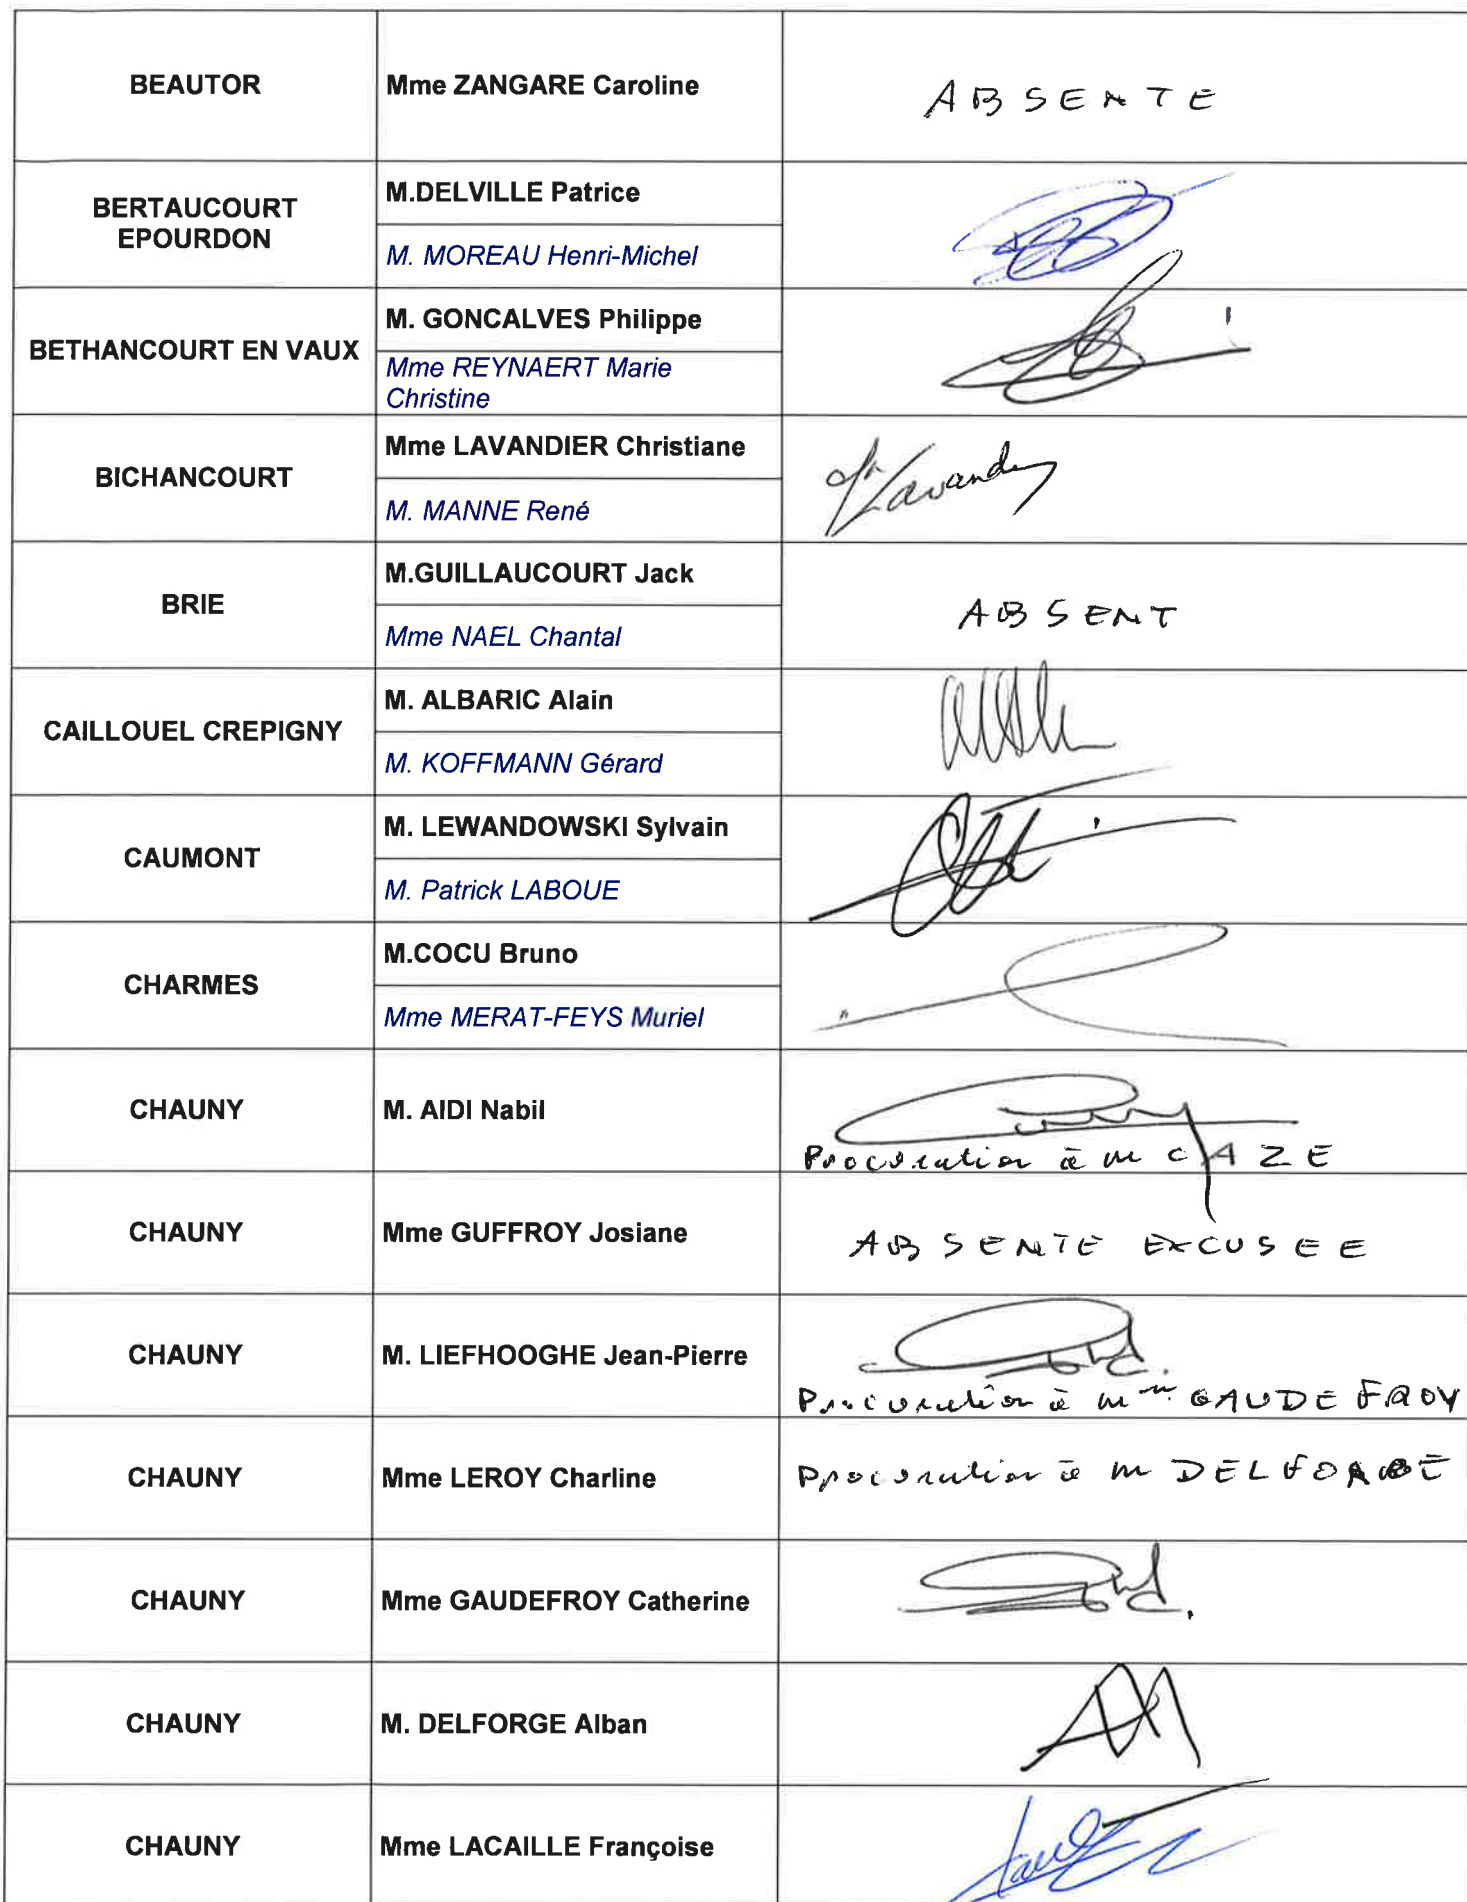 BEAUTOR
Mme ZANGARE Caroline
ABSENTE
BERTAUCOURT
EPOURDON
M.DELVILLE Patrice
M. MOREAU Henri-Michel
BETHANCOURT EN VAUX
M. GONCALVES Philippe
Mme REYNAERT Marie
Christine
BICHANCOURT
Mme LAVANDIER Christiane
M. MANNE René
BRIE
M.GUILLAUCOURT Jack
Mme NAEL Chantal
ABSENT
CAILLOUEL CREPIGNY
M. ALBARIC Alain
M. KOFFMANN Gérard
CAUMONT
M. LEWANDOWSKI Sylvain
M. Patrick LABOUE
CHARMES
M.COCU Bruno
Mme MERAT-FEYS Muriel
CHAUNY
M. AIDI Nabil
Procuration à M CAZE
CHAUNY
Mme GUFFROY Josiane
ABSENTE EXCUSEE
CHAUNY
M. LIEFHOOGHE Jean-Pierre
Procuration à Mme GAUDEFROY
CHAUNY
Mme LEROY Charline
Procuration à M DELFORGE
CHAUNY
Mme GAUDEFROY Catherine
CHAUNY
M. DELFORGE Alban
CHAUNY
Mme LACAILLE Françoise